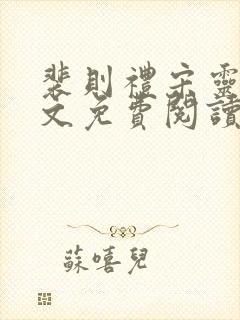 裴則禮宋靈
文免費閱讀
蘇嘻兒